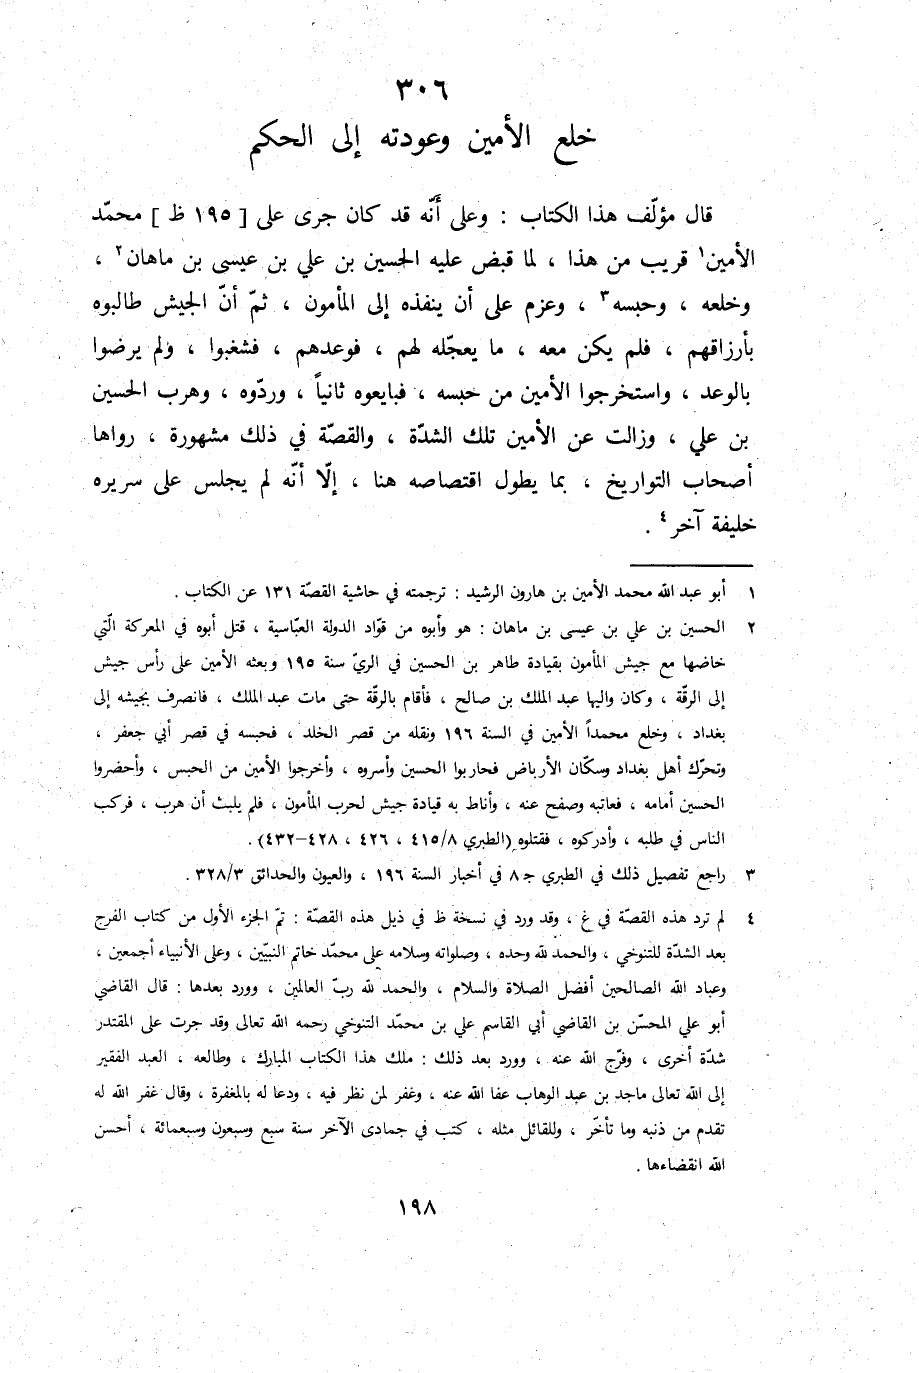 ٣٠٦
خلع الأمين وعودته إلى الحكم
قال مؤلّف هذا الكتاب : وعلى أنّه قد كان جرى على [ ١٩٥ ظ ] محمّد
الأمين١ قريب من هذا ، لما قبض عليه الحسين بن علي بن عيسى بن ماهان٢ ،
وخلعه ، وحبسه٣ ، وعزم على أن ينفذه إلى المأمون ، ثمّ أنّ الجيش طالبوه
بأرزاقهم ، فلم يكن معه ، ما يعجّله لهم ، فوعدهم ، فشغبوا ، ولم يرضوا
بالوعد ، واستخرجوا الأمين من حبسه ، فبايعوه ثانياً ، وردّوه ، وهرب الحسين
بن علي ، وزالت عن الأمين تلك الشدّة ، والقصّة في ذلك مشهورة ، رواها
أصحاب التواريخ ، بما يطول اقتصاصه هنا ، إلّا أنّه لم يجلس على سريره
خليفة آخر٤ .
١ أبو عبد الله محمد الأمين بن هارون الرشيد : ترجمته في حاشية القصّة ١٣١ عن الكتاب .
٢ الحسين بن علي بن عيسى بن ماهان : هو وأبوه من قوّاد الدولة العبّاسية ، قتل أبوه في المعركة الّتي
خاضها مع جيش المأمون بقيادة طاهر بن الحسين في الريّ سنة ١٩٥ وبعثه الأمين على رأس جيش
إلى الرقّة ، وكان واليها عبد الملك بن صالح ، فأقام بالرقّة حتى مات عبد الملك ، فانصرف بجيشه إلى
بغداد ، وخلع محمداً الأمين في السنة ١٩٦ ونقله من قصر الخلد ، فحبسه في قصر أبي جعفر ،
وتحرّك أهل بغداد وسكّان الأرباض فحاربوا الحسين وأسروه ، وأخرجوا الأمين من الحبس ، وأحضروا
الحسين أمامه ، فعاتبه وصفح عنه ، وأناط به قيادة جيش لحرب المأمون ، فلم يلبث أن هرب ، فركب
الناس في طلبه ، وأدركوه ، فقتلوه (الطبري ٤١٥/٨ ، ٤٢٦ ، ٤٢٨–٤٣٢) .
٣ راجع تفصيل ذلك في الطبري جـ ٨ في أخبار السنة ١٩٦ ، والعيون والحدائق ٣٢٨/٣ .
٤ لم ترد هذه القصّة في غ ، وقد ورد في نسخة ظ في ذيل هذه القصّة : تمّ الجزء الأول من كتاب الفرج
بعد الشدّة للتنوخي ، والحمد لله وحده ، وصلواته وسلامه على محمّد خاتم النبيّين ، وعلى الأنبياء أجمعين ،
وعباد الله الصالحين أفضل الصلاة والسلام ، والحمد لله ربّ العالمين ، وورد بعدها : قال القاضي
أبو علي المحسّن بن القاضي أبي القاسم علي بن محمّد التنوخي رحمه الله تعالى وقد جرت على المقتدر
شدّة أخرى ، وفرّج الله عنه ، وورد بعد ذلك : ملك هذا الكتاب المبارك ، وطالعه ، العبد الفقير
إلى الله تعالى ماجد بن عبد الوهاب عفا الله عنه ، وغفر لمن نظر فيه ، ودعا له بالمغفرة ، وقال غفر الله له
تقدم من ذنبه وما تأخّر ، وللقائل مثله ، كتب في جمادى الآخر سنة سبع وسبعون وسبعمائة ، أحسن
الله انقضاءها .
١٩٨